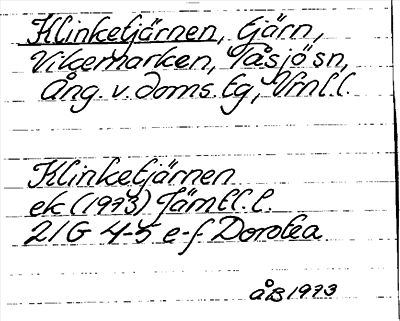 Klinketjärnen, tjärn,
Vikermarken, Tåsjö sn,
Ång. v. doms. tg, Vrnl. l.
Klinketjärnen
ek (1973) Jämtl. l.
21G 4-5 e-f Dorotea
ÅB 1973